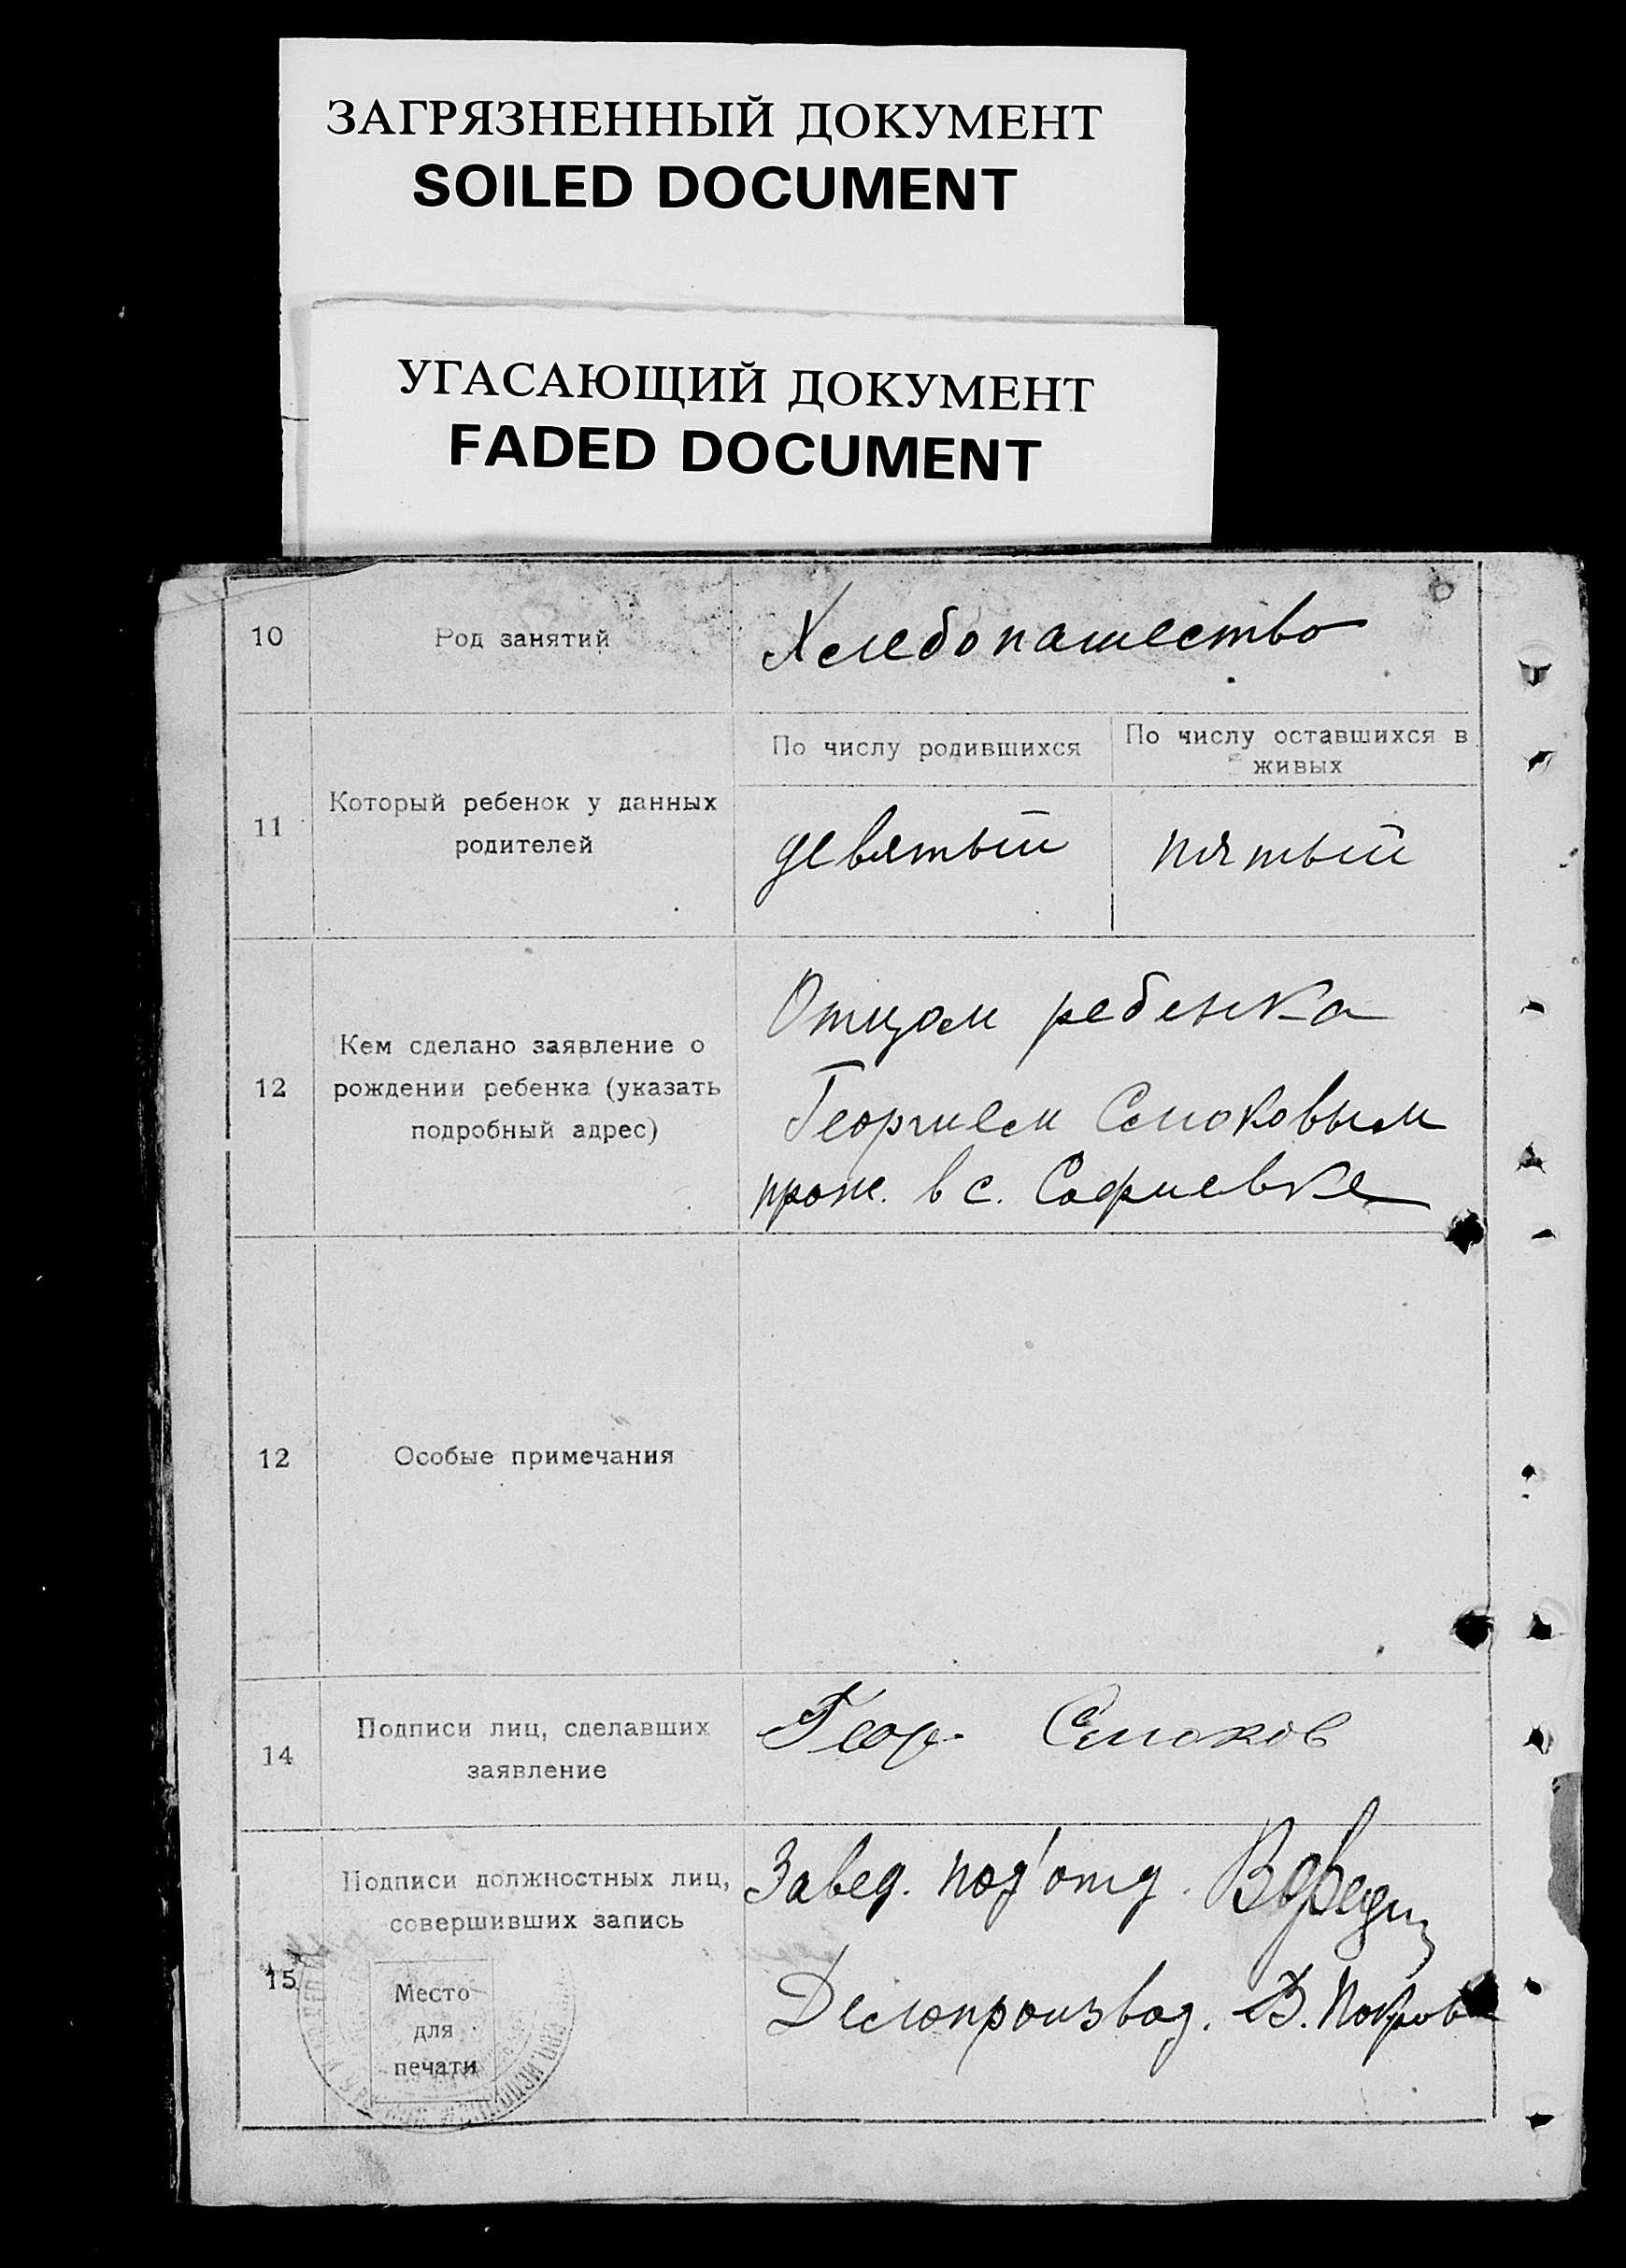 ЗАГРЯЗНЕННЫЙ ДОКУМЕНТ
SOILED DOCUMENT
УГАСАЮЩИЙ ДОКУМЕНТ
FADED DOCUMENT
10
Род занятий
Хлебопашество
11
Который ребенок у данных
родителей
По числу родившихся
девятый
По числу оставшихся в
живых
пятый
12
Кем сделано заявление о
рождении ребенка (указать
подробный адрес)
Отцом ребенка
Георгием
прож. в с. Софиевке
12
Особые примечания
14
Подписи лиц, сделавших
заявление
Геор.
15
Подписи должностных лиц,
совершивших запись
Место
для
печати
Завед. под'отд.
Делопроизвод. В. Покров